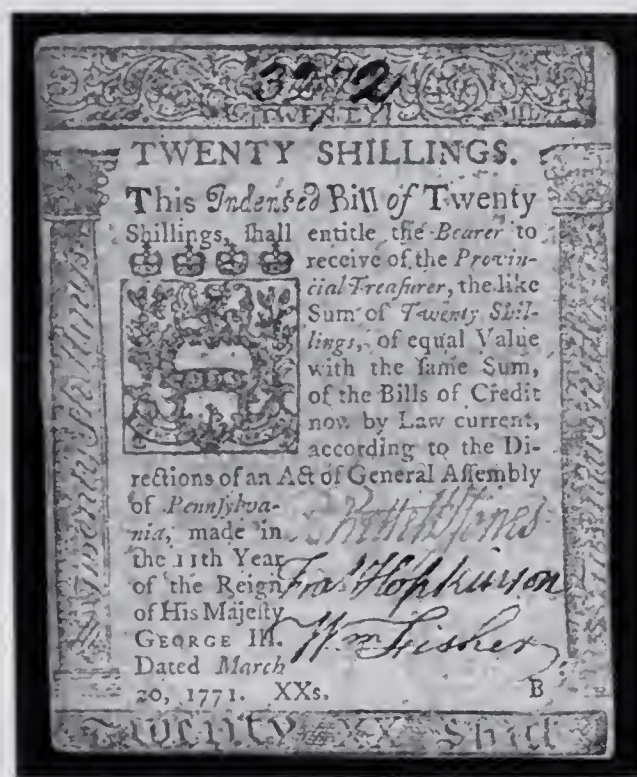 3272
TWENTY SHILLINGS.
This Indented Bill of Twenty
Shillings, ſhall entitle the Bearer to
receive of the Provin-
cial Treaſurer, the like
Sum of Twenty Shil-
lings, of equal Value
with the ſame Sum,
of the Bills of Credit
now by Law current,
according to the Di-
rections of an Act of General Aſſembly
of Pennſylva-
nia, made in
the 11th Year
of the Reign
of His Majeſty
GEORGE III.
Dated March
20, 1771. XXs.
Jones
Fras Hopkinson
Wm Fisher
B
Twenty XX Shill